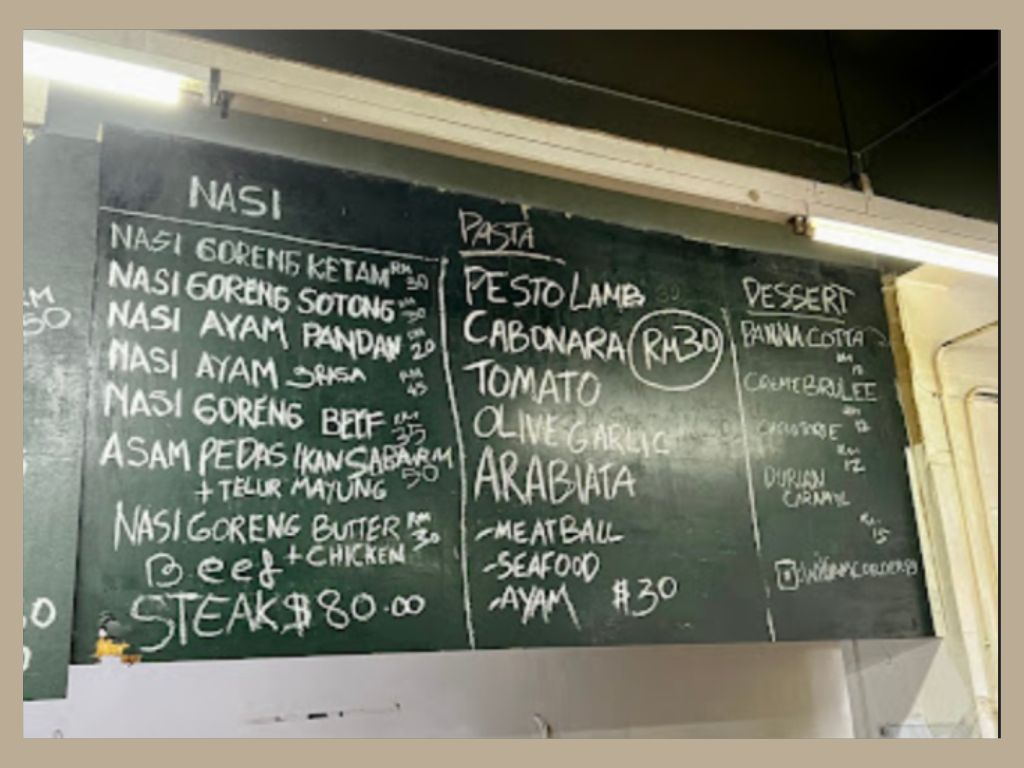 NASI
NASI GORENG KETAM RM 30
NASI GORENG SOTONG RM 30
NASI AYAM PANDAN RM 20
NASI AYAM RM 45
NASI GORENG BEEF RM 35
ASAM PEDAS IKAN SABARRM 50
+ TELUR MAYUNG
NASI GORENG BUTTER RM 30
+ CHICKEN
Beef
STEAK $80.00
PASTA
PESTO LAMB
CABONARA RM30
TOMATO
OLIVE GARLIC
ARABIATA
-MEATBALL
-SEAFOOD
-AYAM $30
DESSERT
PANNA COTTA
CREMEBRULEE
RM 12
DURIAN
CARAMEL
15
RM
50
0